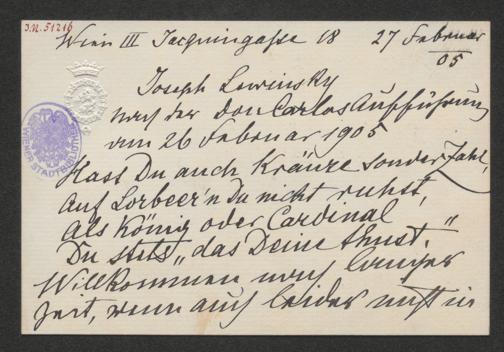 J.N. 51216
Wien III Jacquingasse 18 27 Februar
05
Joseph Lewinsky
nach der Don Carlos Aufführung
am 26 Februar 1905
Hast Du auch Kränze sonder Zahl,
Auf Lorbeer'n Du nicht ruhst,
Als König oder Cardinal
Du stets „das Deine thust."
Willkommen nach langer
Zeit, wenn auch leider nicht in
WIENER STADTBIBLIOTHEK